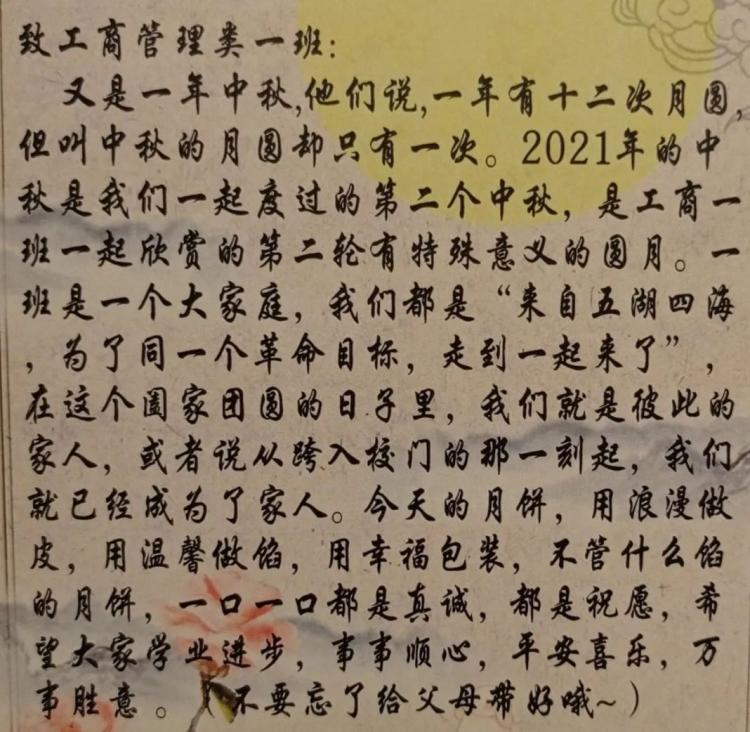 致工商管理类一班:
又是一年中秋,他们说,一年有十二次月圆,
但叫中秋的月圆却只有一次。2021年的中
秋是我们一起度过的第二个中秋，是工商一
班一起欣赏的第二轮有特殊意义的圆月。一
班是一个大家庭，我们都是“来自五湖四海
，为了同一个革命目标，走到一起来了”，
在这个阖家团圆的日子里，我们就是彼此的
家人，或者说从跨入校门的那一刻起，我们
就已经成为了家人。今天的月饼，用浪漫做
皮，用温馨做馅，用幸福包装，不管什么馅
的月饼，一口一口都是真诚，都是祝愿，希
望大家学业进步，事事顺心，平安喜乐，万
事胜意。（不要忘了给父母带好哦~）